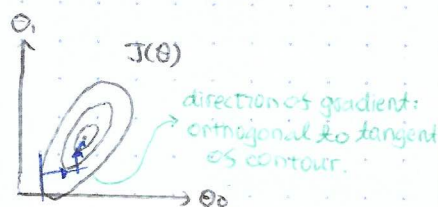 θ₁
J(θ)
direction of gradient:
orthogonal to tangent
of contour.
θ₀